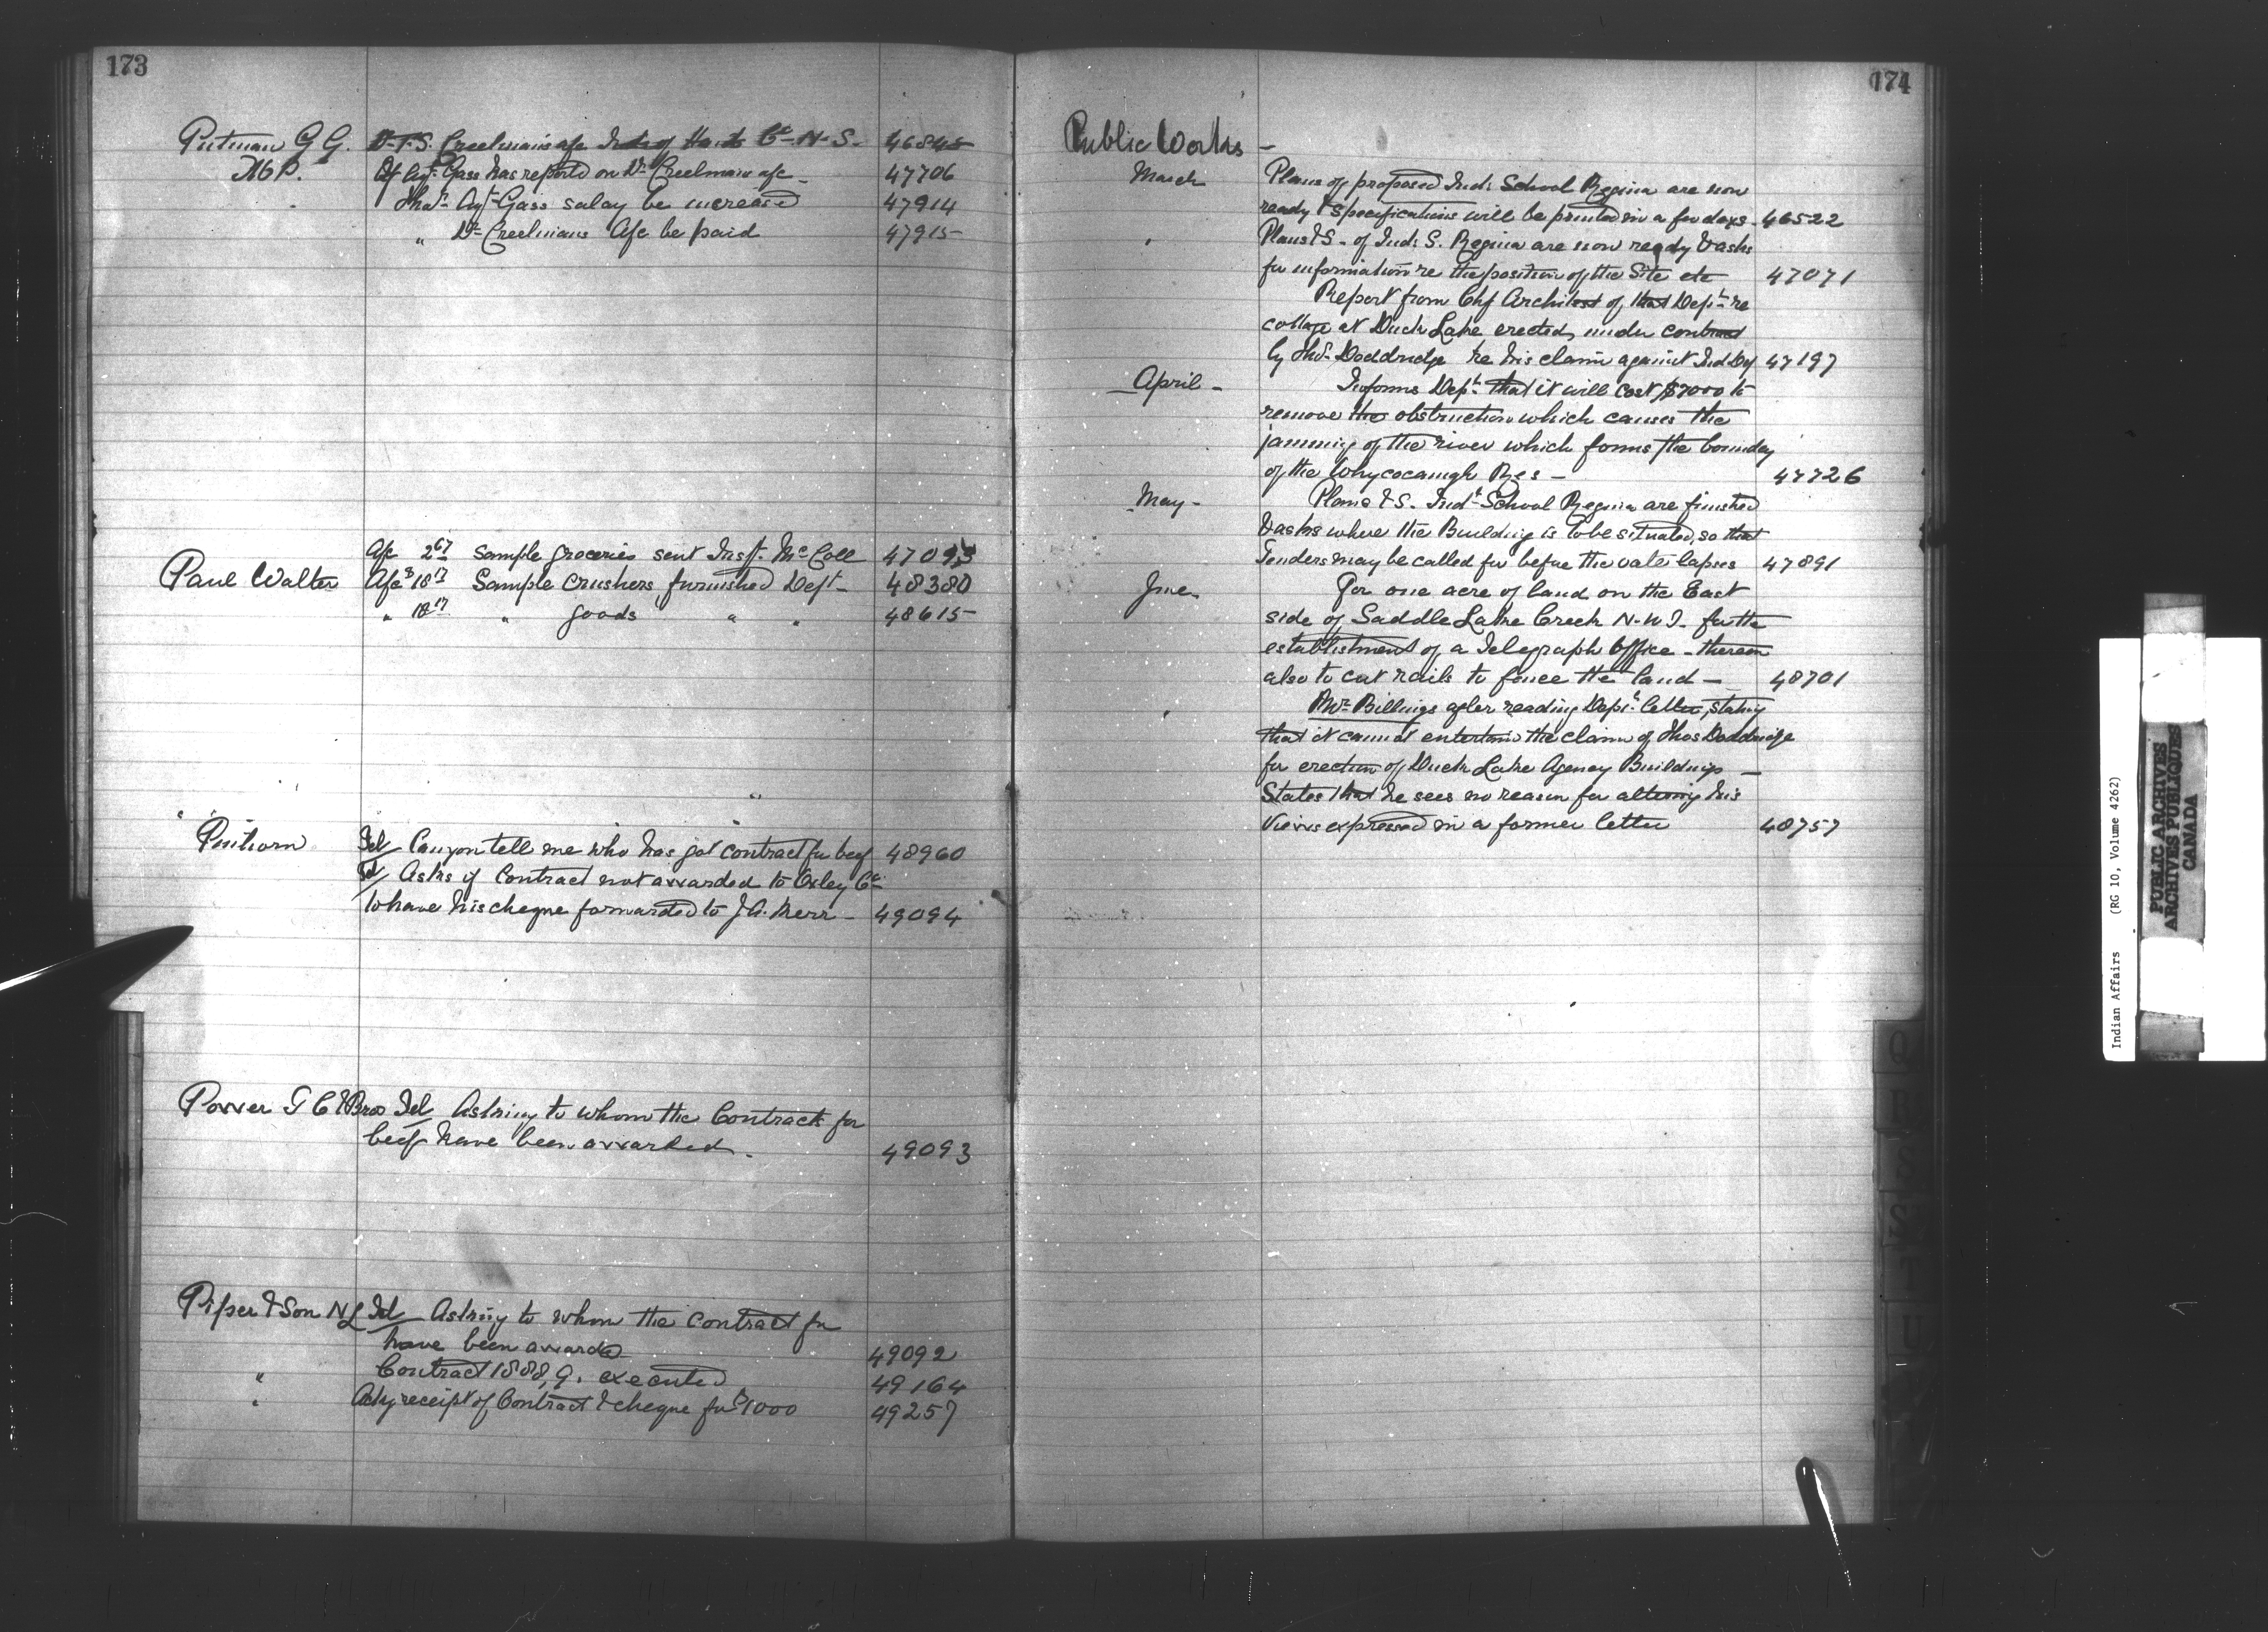 173
Putman G G. D. F. S. Creelmans a/c Inds of Hants Co N. S. 46845
M P. If Agt Gass has reported on Dr Creelmans a/c 47706
That Agt Gass salay be increased 47914
" Dr Creelmans A/c be paid 47915
A/c 267 Sample groceries sent Insp. McColl 47093
Paul Walter A/cs 1817 Sample Crushers furnished Dept 48380
" 1817 " goods " " 48615
Pinhorn Tel Can you tell me who has got contract for beef 48960
Tel Asks if Contract not awarded to Oxley Co
to have his cheque forwarded to J A. Kerr 49094
Power T C & Bros Tel Asking to whom the Contracts for
beef have been awarded. 49093
Piper & Son N L Tel Asking to whom the contract for
have been awarded 49092
" Contract 1888,9. executed 49164
" Ackg receipt of Contract & cheque for $1000 49257
174
Public Works -
March Plans of proposed Ind: School Regina are now
ready & specifications will be printed in a few days 46522
" Plans & S. of Ind: S. Regina are now ready & asks
for information re the position of the Site etc 47071
Report from Chf Architect of that Dept re
cottage at Duck Lake erected under contract
by Thos Doddridge re his claim against Ind Dep 47197
April - Informs Dept that it will cost $7000 to
remove the obstruction which causes the
jamming of the river which forms the bounday
of the Whycocamagh Res - 47726
May - Plans & S. Indl School Regina are finished
& asks where the Building is to be situated, so that
Tenders may be called for before the vote lapses 47891
June For one acre of land on the East
side of Saddle Lake Creek N. W. T. for the
establishment of a Telegraph Office - thereon
also to cut rails to fence the land - 48701
" Mr Billings after reading Dept letter, stating
that it cannot entertain the claim of Thos Doddridge
for erection of Duck Lake Agency Buildings -
States that he sees no reason for altering his
Views expressed in a former letter 48757
Q
R
S
T
U
Indian Affairs (RG 10, Volume 4262)
PUBLIC ARCHIVES
ARCHIVES PUBLIQUES
CANADA